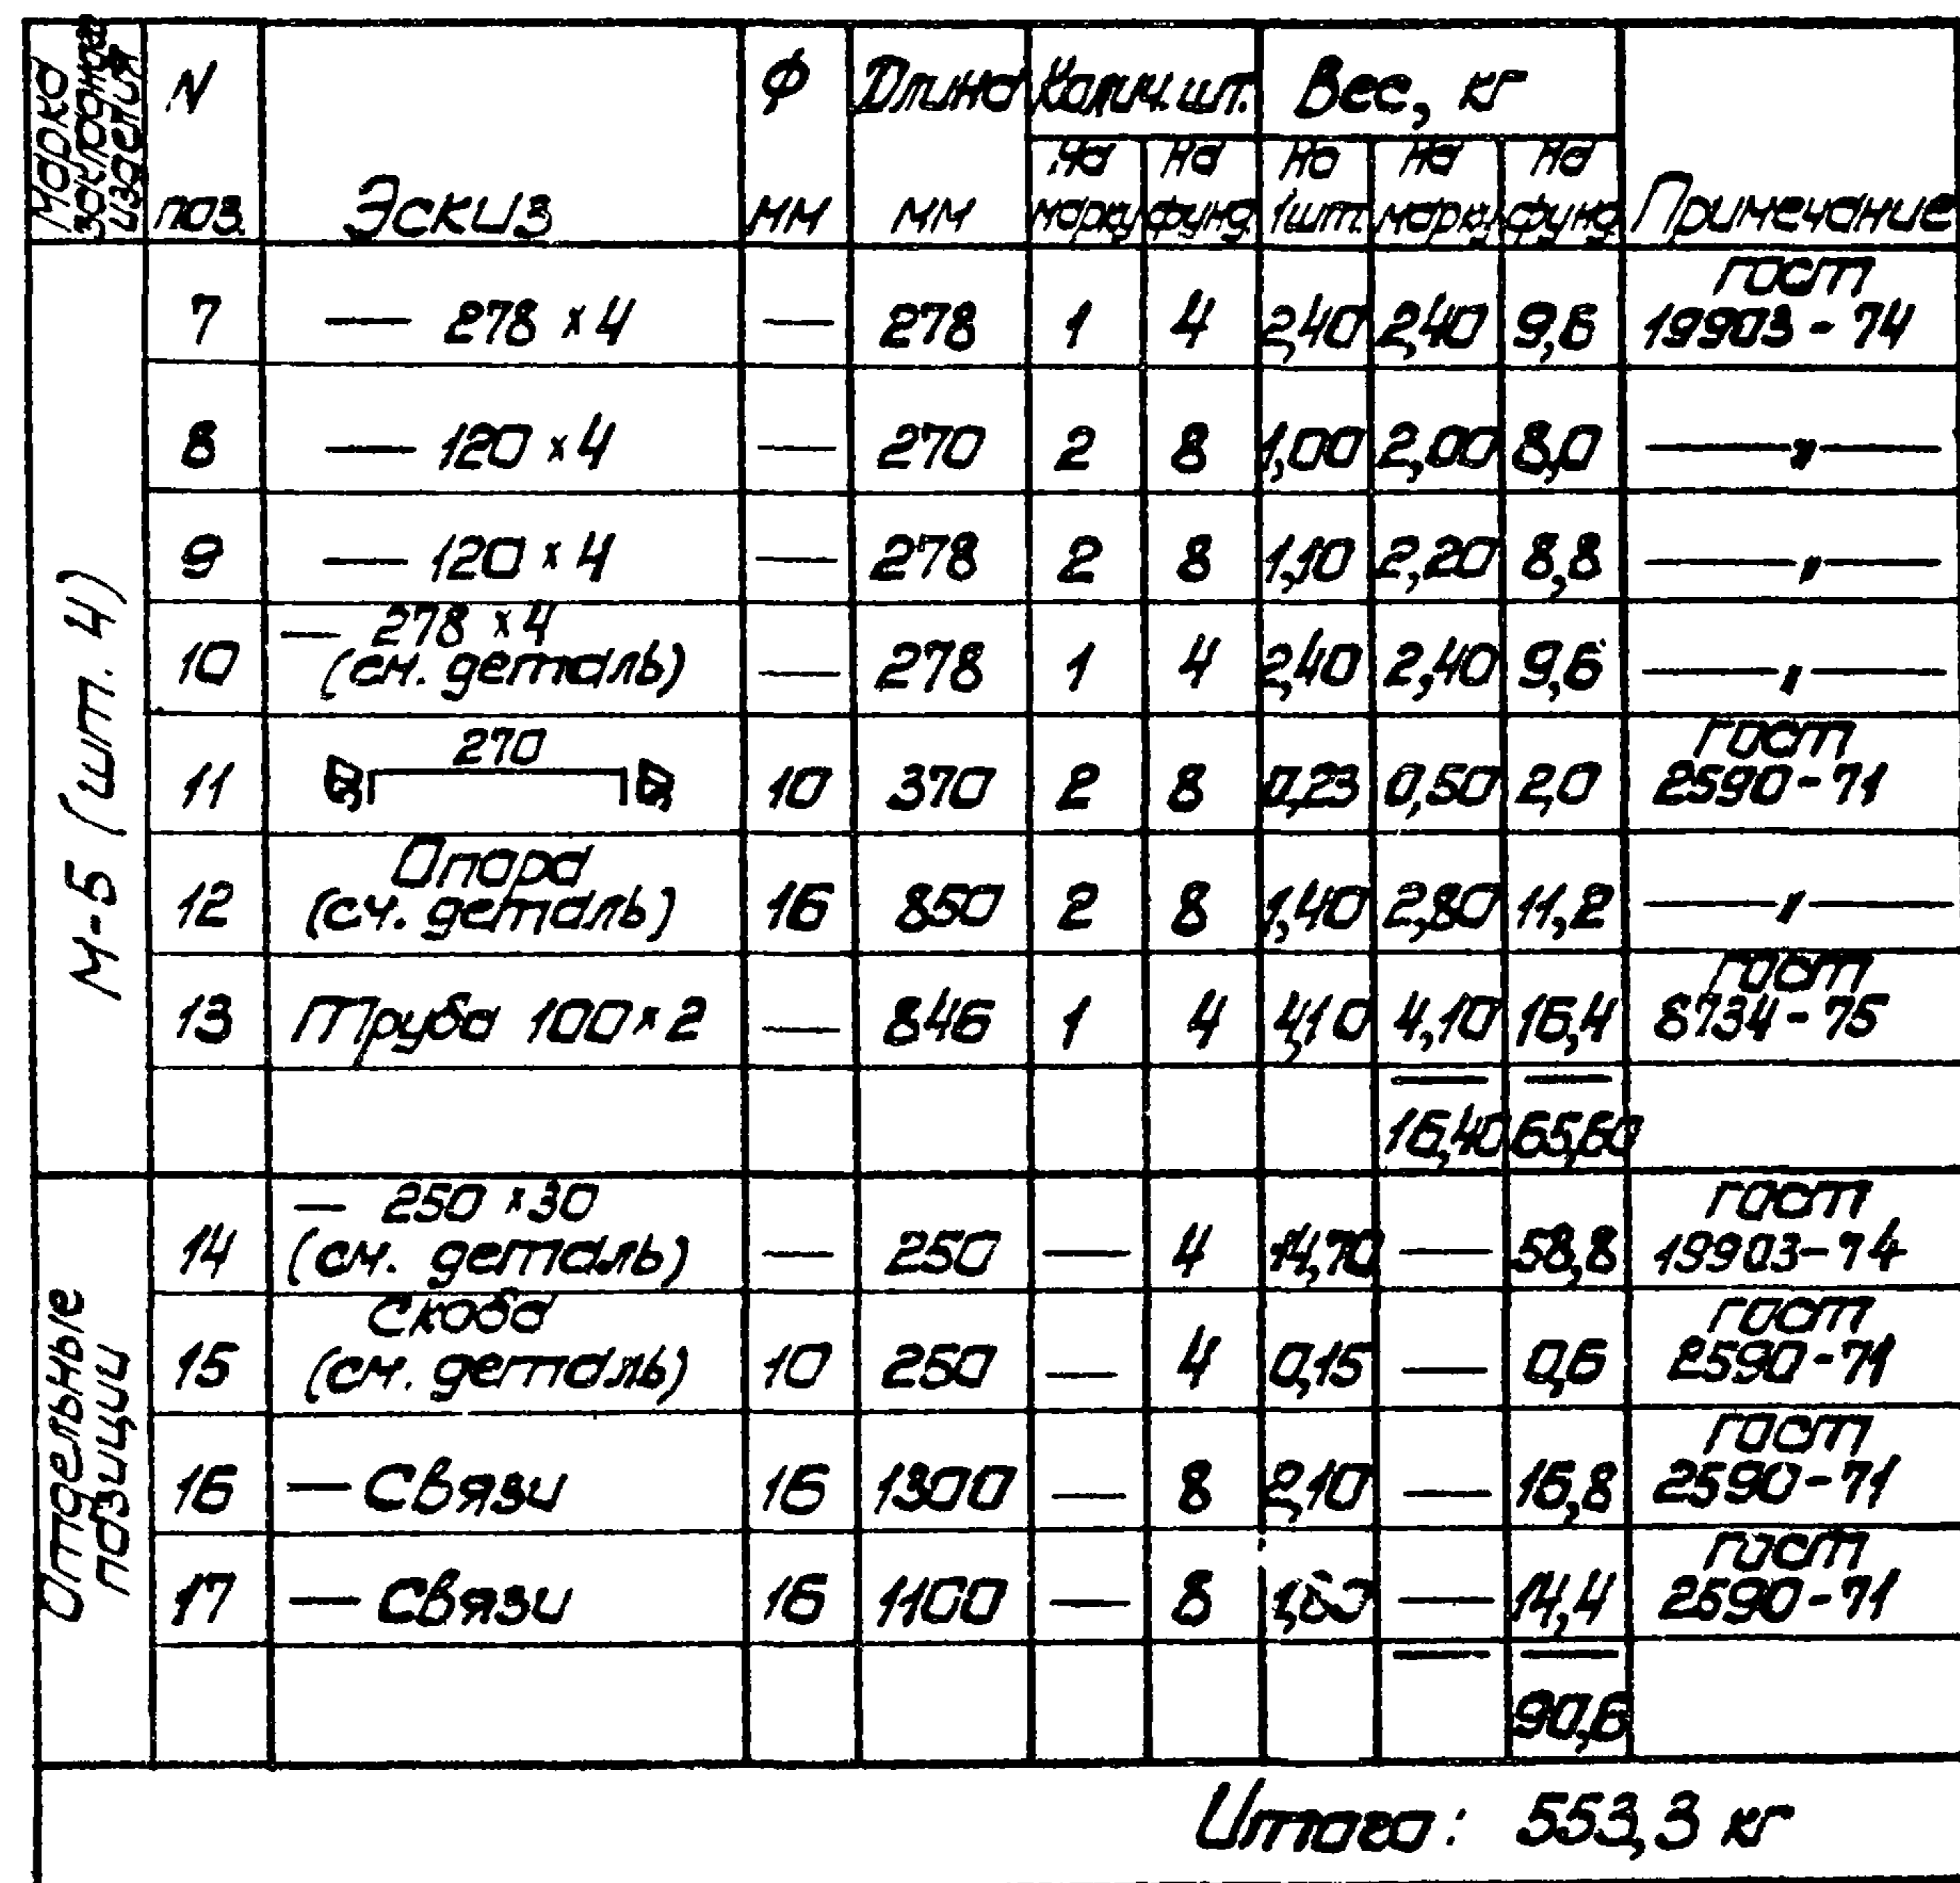 Марка закладного изделия
N поз.
Эскиз
Ф мм
Длина мм
Колич. шт.
на марку
на фунд.
Вес, кг
на 1шт.
на марку
на фунд.
Примечание
М-5 (шт. 4)
7 — 278 × 4 — 278 1 4 2,40 2,40 9,6 ГОСТ 19903-74
8 — 120 × 4 — 270 2 8 1,00 2,00 8,0 —„—
9 — 120 × 4 — 278 2 8 1,10 2,20 8,8 —„—
10 — 278 × 4 (см. деталь) — 278 1 4 2,40 2,40 9,6 —„—
11 270 10 370 2 8 0,23 0,50 2,0 ГОСТ 2590-71
12 Опора (см. деталь) 16 850 2 8 1,40 2,80 11,2 —„—
13 Труба 100 × 2 — 846 1 4 4,10 4,10 16,4 ГОСТ 8734-75
16,40 65,60
Отдельные позиции
14 — 250 × 30 (см. деталь) — 250 — 4 14,70 — 58,8 ГОСТ 19903-74
15 Скоба (см. деталь) 10 250 — 4 0,15 — 0,6 ГОСТ 2590-71
16 — Связи 16 1300 — 8 2,10 — 16,8 ГОСТ 2590-71
17 — Связи 16 1100 — 8 — 14,4 ГОСТ 2590-71
90,6
Итого: 553,3 кг